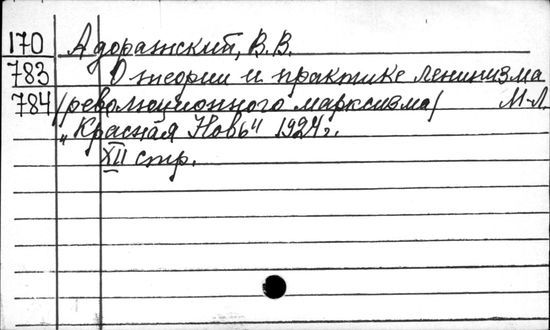 170 Адоратский, В.В.
783 О теории и практике ленинизма
784 /революционного марксизма/ М-Л.
"Красная Новь" 1924 г.
XII стр.